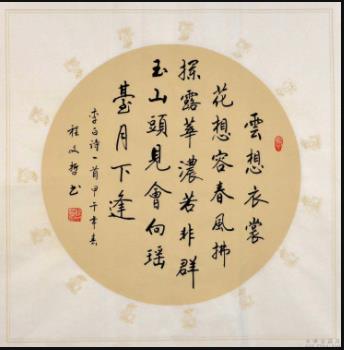 雲想衣裳
花想容春風拂
露華濃若非群
玉山頭見會向瑶
臺月下逢
李白诗一首甲午年春
程
书